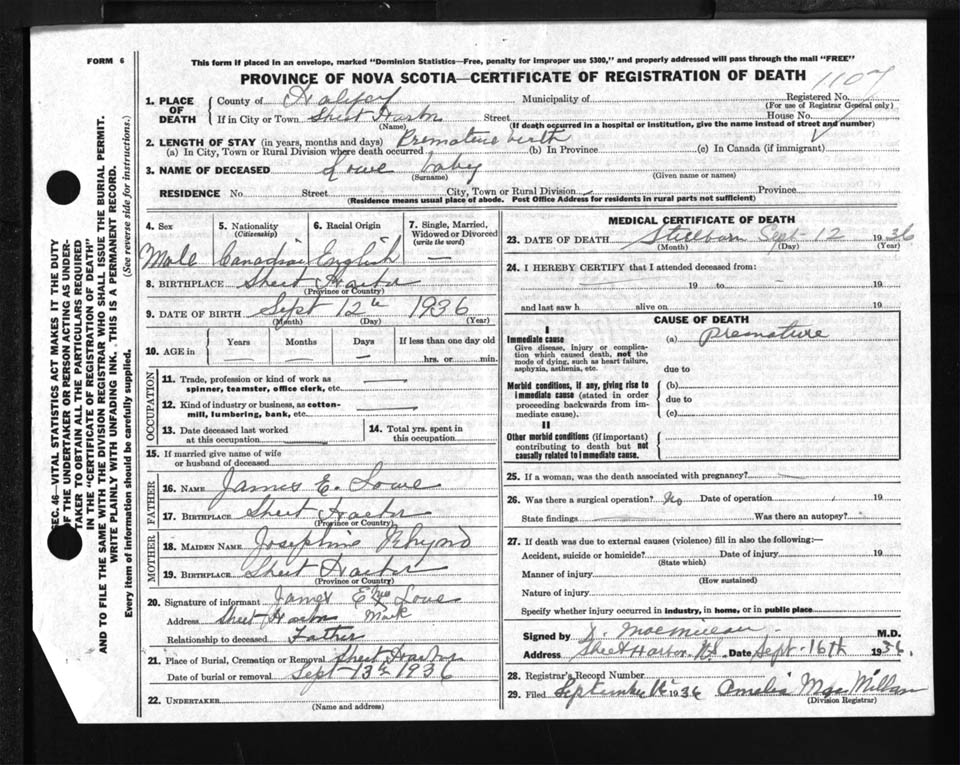 FORM 6
This form if placed in an envelope, marked "Dominion Statistics—Free, penalty for improper use $300," and properly addressed will pass through the mail "FREE"
PROVINCE OF NOVA SCOTIA—CERTIFICATE OF REGISTRATION OF DEATH
1107
SEC. 46—VITAL STATISTICS ACT MAKES IT THE DUTY
OF THE UNDERTAKER OR PERSON ACTING AS UNDER-
TAKER TO OBTAIN ALL THE PARTICULARS REQUIRED
IN THE "CERTIFICATE OF REGISTRATION OF DEATH"
AND TO FILE THE SAME WITH THE DIVISION REGISTRAR WHO SHALL ISSUE THE BURIAL PERMIT.
WRITE PLAINLY WITH UNFADING INK. THIS IS A PERMANENT RECORD.
Every item of information should be carefully supplied. (See reverse side for instructions.)
1. PLACE OF DEATH
County of Halifax Municipality of Registered No.
(For use of Registrar General only)
If in City or Town Sheet Harbor Street House No.
(Name) (If death occurred in a hospital or institution, give the name instead of street and number)
2. LENGTH OF STAY (in years, months and days) Premature birth
(a) In City, Town or Rural Division where death occurred (b) In Province (c) In Canada (if immigrant)
3. NAME OF DECEASED Lowe baby
(Surname) (Given name or names)
RESIDENCE No. Street City, Town or Rural Division Province
(Residence means usual place of abode. Post Office Address for residents in rural parts not sufficient)
4. Sex 5. Nationality 6. Racial Origin 7. Single, Married,
(Citizenship) Widowed or Divorced
(write the word)
Male Canadian English —
8. BIRTHPLACE Sheet Harbor
(Province or Country)
9. DATE OF BIRTH Sept 12th 1936
(Month) (Day) (Year)
10. AGE in Years Months Days If less than one day old
— — — hrs. or min.
OCCUPATION
11. Trade, profession or kind of work as
spinner, teamster, office clerk, etc. —
12. Kind of industry or business, as cotton-
mill, lumbering, bank, etc. —
13. Date deceased last worked
at this occupation
14. Total yrs. spent in
this occupation
15. If married give name of wife
or husband of deceased
FATHER
16. NAME James E. Lowe
17. BIRTHPLACE Sheet Harbor
(Province or Country)
MOTHER
18. MAIDEN NAME Josephine Rhynd
19. BIRTHPLACE Sheet Harbor
(Province or Country)
20. Signature of informant James E. his X Lowe
Address Sheet Harbor Mark
Relationship to deceased Father
21. Place of Burial, Cremation or Removal Sheet Harbor
Date of burial or removal Sept 13th 1936
22. UNDERTAKER
(Name and address)
MEDICAL CERTIFICATE OF DEATH
23. DATE OF DEATH Stillborn Sept 12 1936
(Month) (Day) (Year)
24. I HEREBY CERTIFY that I attended deceased from:
19 to 19
and last saw h alive on 19
CAUSE OF DEATH
I
Immediate cause (a) premature
Give disease, injury or complica-
tion which caused death, not the
mode of dying, such as heart failure,
asphyxia, asthenia, etc.
due to
Morbid conditions, if any, giving rise to
immediate cause (stated in order
proceeding backwards from im-
mediate cause).
(b)
due to
(c)
II
Other morbid conditions (if important)
contributing to death but not
causally related to immediate cause.
25. If a woman, was the death associated with pregnancy?
26. Was there a surgical operation? No Date of operation 19
State findings Was there an autopsy?
27. If death was due to external causes (violence) fill in also the following:—
Accident, suicide or homicide? Date of injury 19
(State which)
Manner of injury
(How sustained)
Nature of injury
Specify whether injury occurred in industry, in home, or in public place
Signed by D. MacMillan M.D.
Address Sheet Harbor N.S. Date Sept. 16th 1936.
28. Registrar's Record Number
29. Filed September 1936 Amelia MacMillan
(Division Registrar)